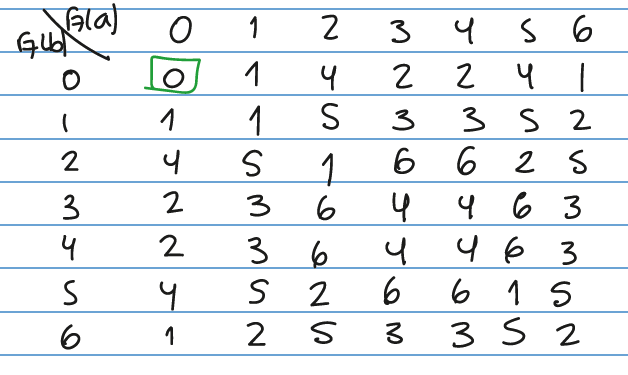 F₇(a) 0 1 2 3 4 5 6
F₇(b)
0 0 1 4 2 2 4 1
1 1 1 5 3 3 5 2
2 4 5 1 6 6 2 5
3 2 3 6 4 4 6 3
4 2 3 6 4 4 6 3
5 4 5 2 6 6 1 5
6 1 2 5 3 3 5 2